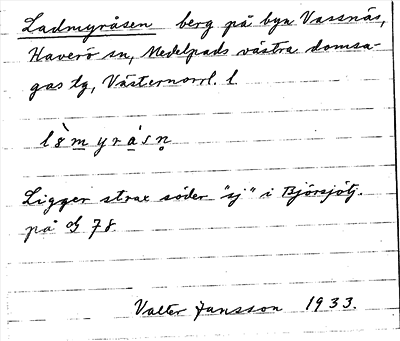 Ladmyråsen berg på byn Vassnäs,
Haverö sn, Medelpads västra domsa-
gas tg, Västernorrl. l.
Ligger strax söder "sj" i Björsjötj.
på 78.
Valter Jansson 1933.